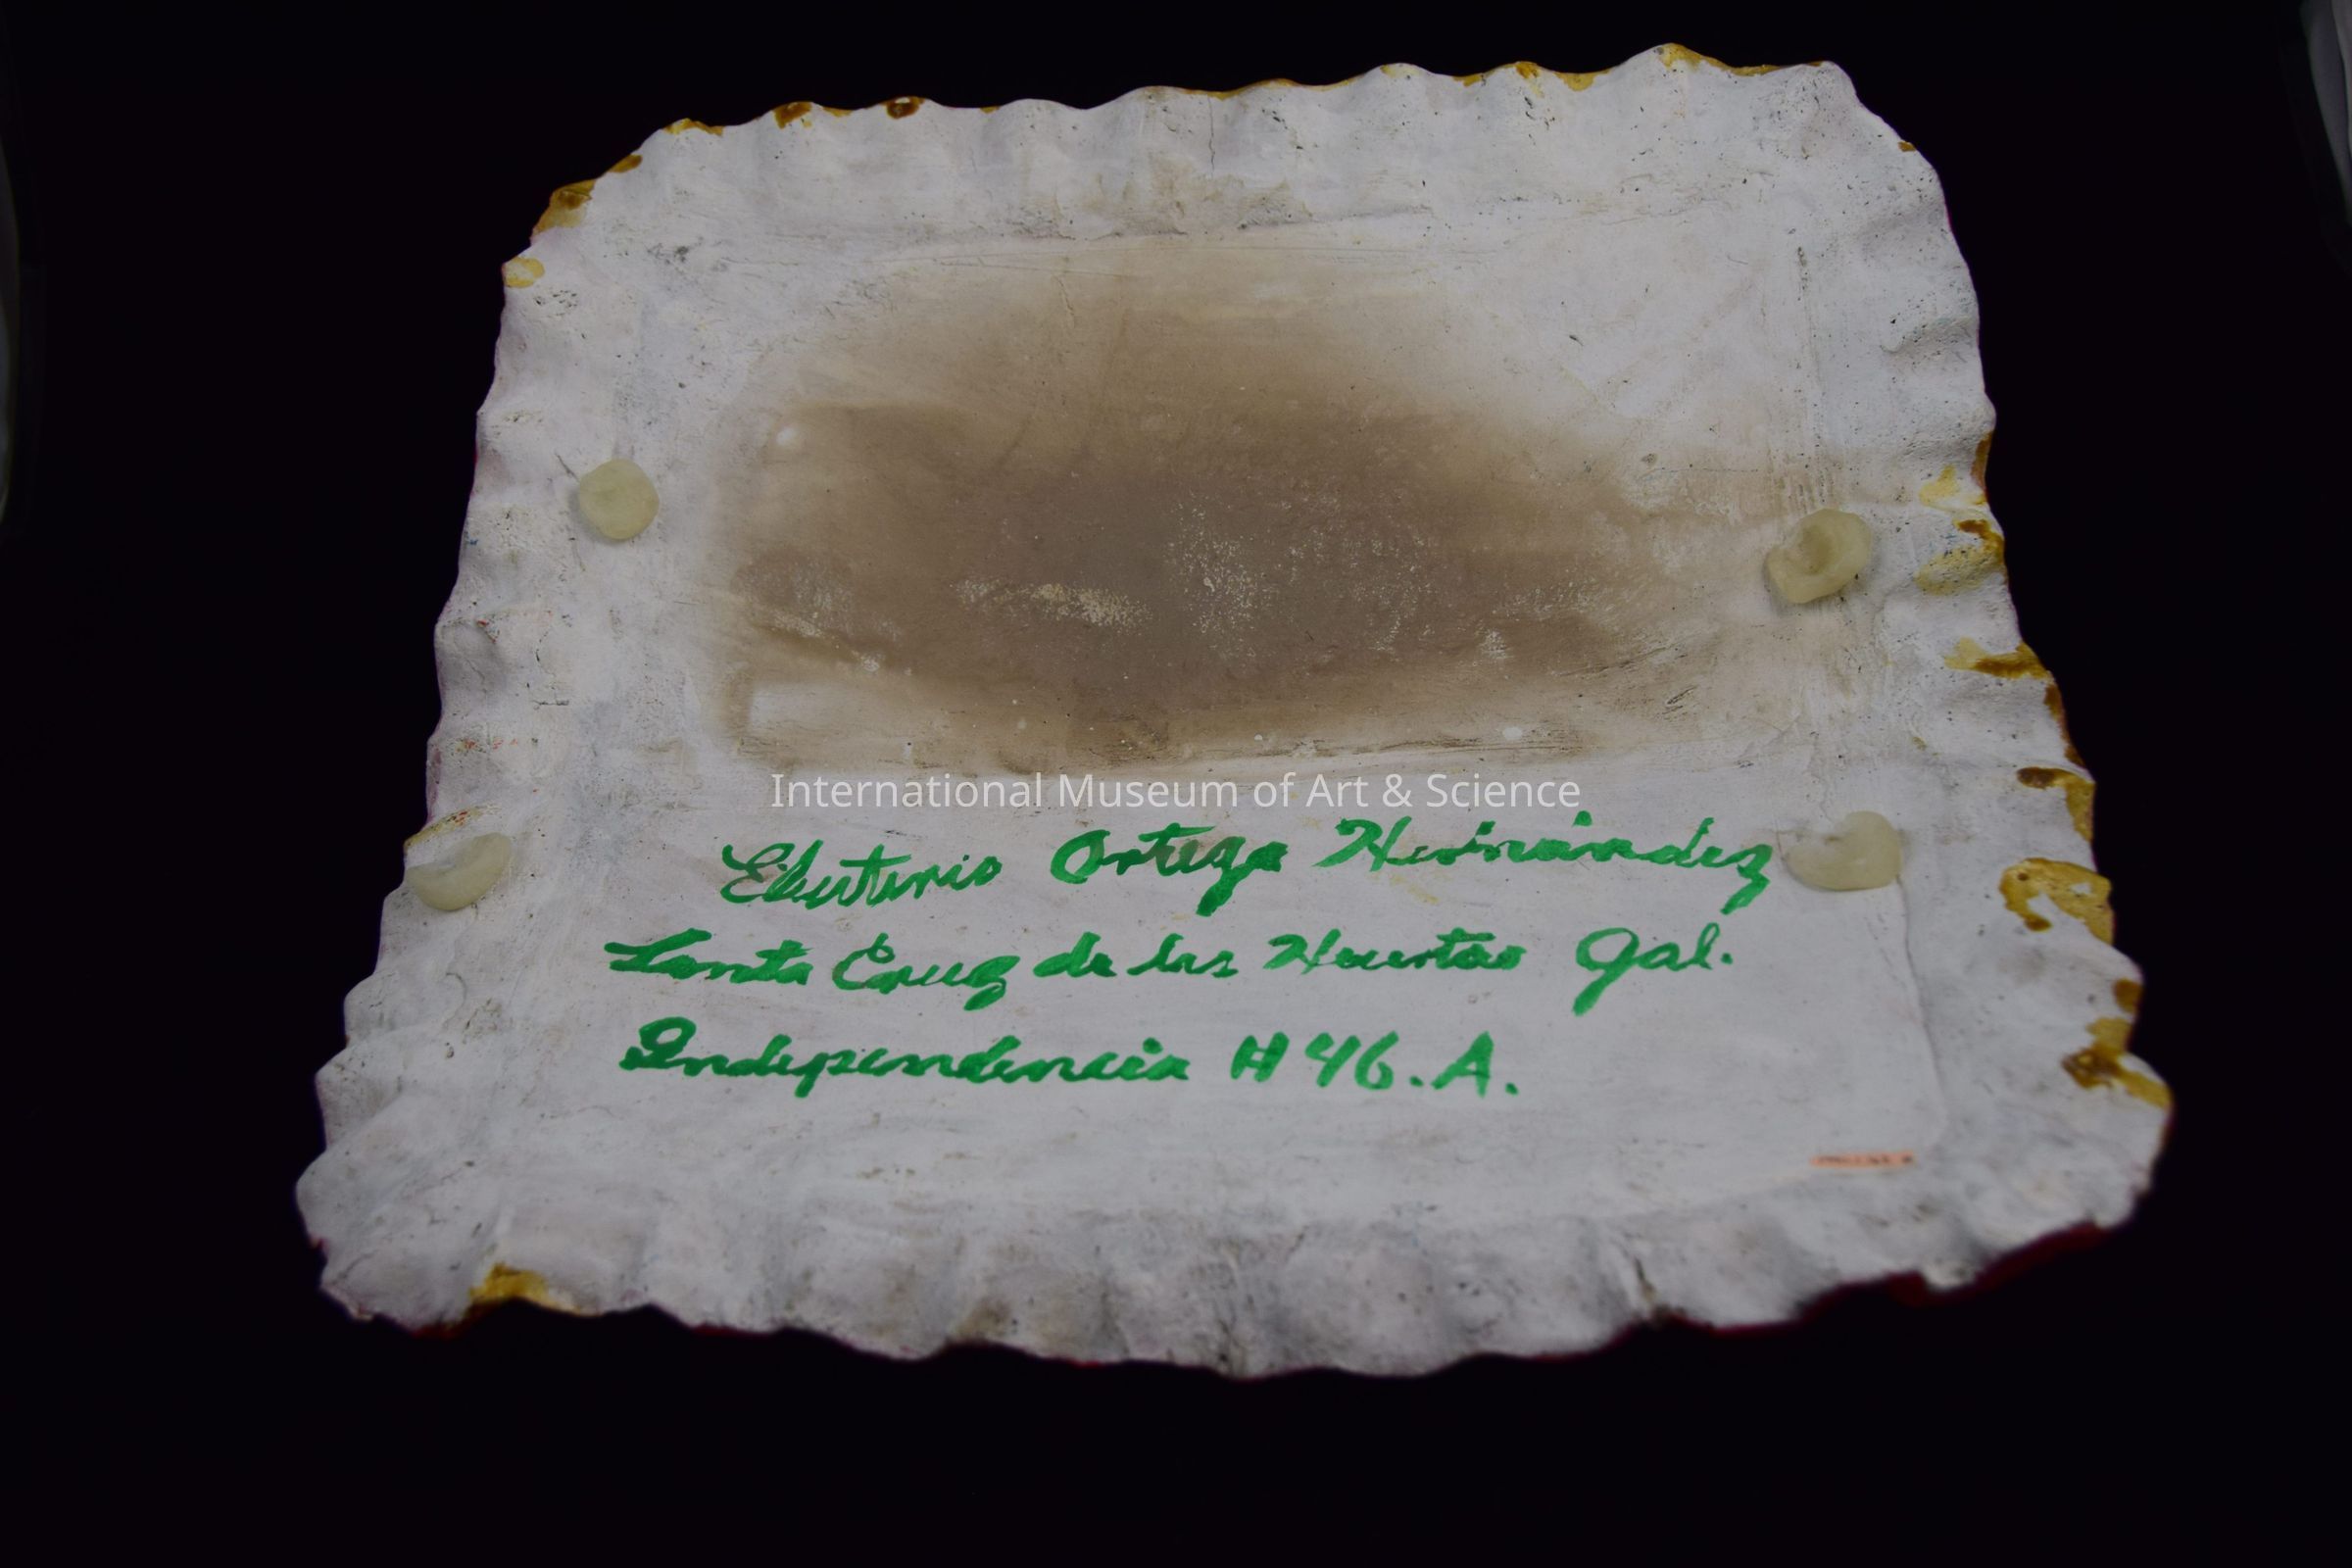 International Museum of Art & Science
Eleuterio Ortega Hernández
Santa Cruz de las Huertas Jal.
Independencia # 46.A.